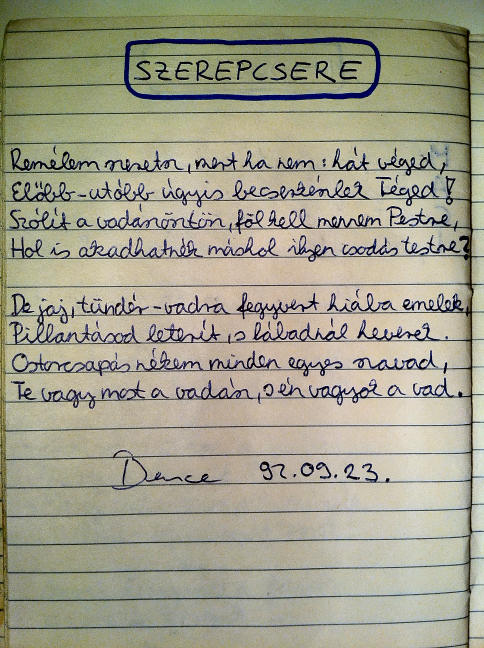 SZEREPCSERE
Remélem szeretsz, mert ha nem: hát véged,
Előbb-utóbb úgyis becserkészlek Téged!
Szólít a vadászösztön, föl kell mennem Pestre,
Hol is akadhatnék máshol ilyen csodás testre?
De jaj, tündér-vadra fegyvert hiába emelek,
Pillantásod leterít, s lábadnál heverek.
Ostorcsapás nékem minden egyes szavad,
Te vagy most a vadász, s én vagyok a vad.
92.09.23.